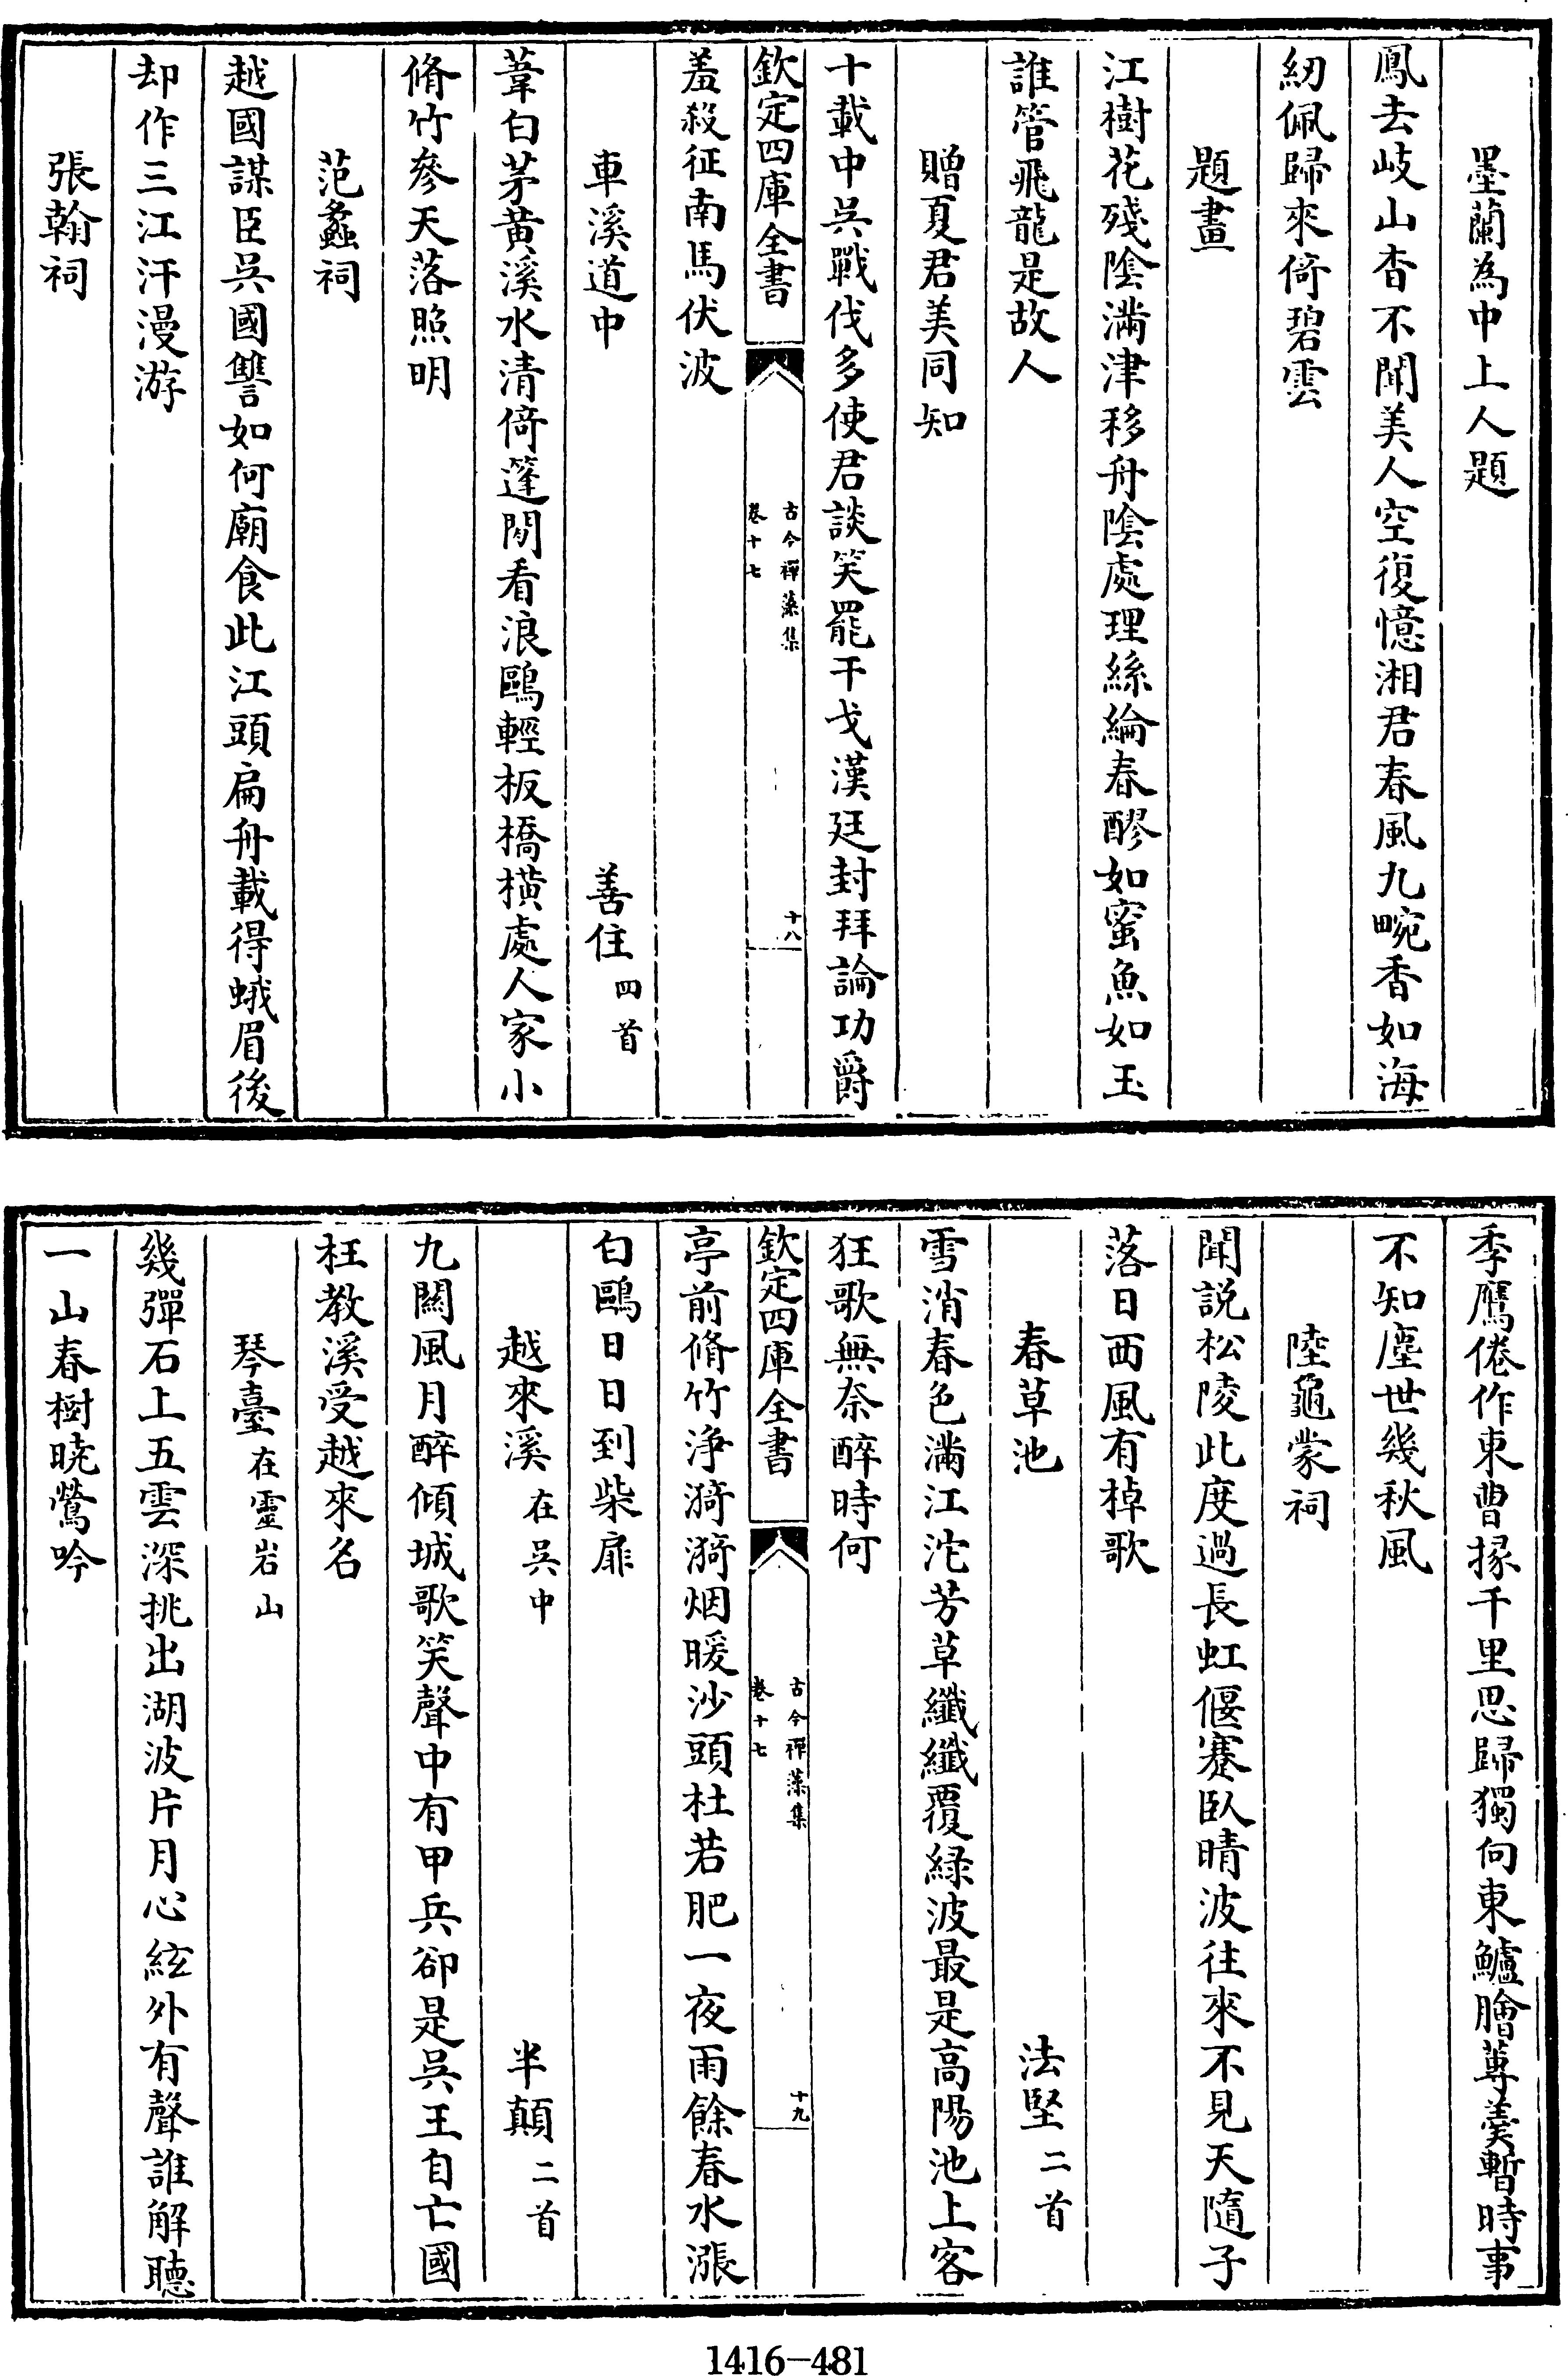 墨蘭為中上人題
鳳去岐山杳不聞美人空復憶湘君春風九畹香如海
紉佩歸來倚碧雲
題畫
江樹花殘陰滿津移舟陰處理絲綸春醪如蜜魚如玉
誰管飛龍是故人
贈夏君美同知
十載中吳戰伐多使君談笑罷干戈漢廷封拜論功爵
欽定四庫全書
古今禪藻集
卷十七
十八
羞殺征南馬伏波
車溪道中 善住四首
葦白茅黃溪水清倚篷閒看浪鷗輕板橋橫處人家小
脩竹參天落照明
范蠡祠
越國謀臣吳國讐如何廟食此江頭扁舟載得蛾眉後
却作三江汗漫游
張翰祠
季鷹倦作東曹掾千里思歸獨向東鱸膾蓴羹暫時事
不知塵世幾秋風
陸龜蒙祠
聞說松陵此度過長虹偃蹇臥晴波往來不見天隨子
落日西風有棹歌
春草池 法堅二首
雪消春色滿江沱芳草纖纖覆綠波最是高陽池上客
狂歌無奈醉時何
欽定四庫全書
古今禪藻集
卷十七
十九
亭前脩竹淨漪漪烟暖沙頭杜若肥一夜雨餘春水漲
白鷗日日到柴扉
越來溪在吳中 半顛二首
九闕風月醉傾城歌笑聲中有甲兵卻是吳王自亡國
枉教溪受越來名
琴臺在靈岩山
幾彈石上五雲深挑出湖波片月心絃外有聲誰解聽
一山春樹曉鶯吟
1416-481